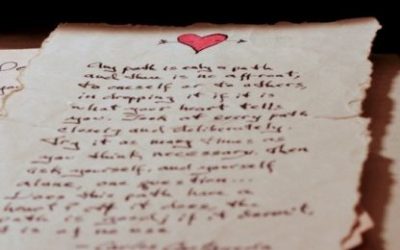 Any path is only a path
and there is no affront,
to oneself or to others,
in dropping it if it is
what your heart tells
you. Look at every path
closely and deliberately.
Try it as many times as
you think necessary, then
ask yourself, and yourself
alone, one question...
Does this path have a
heart? If it does, the
path is good; if it doesn't,
it is of no use
— Carlos Castaneda